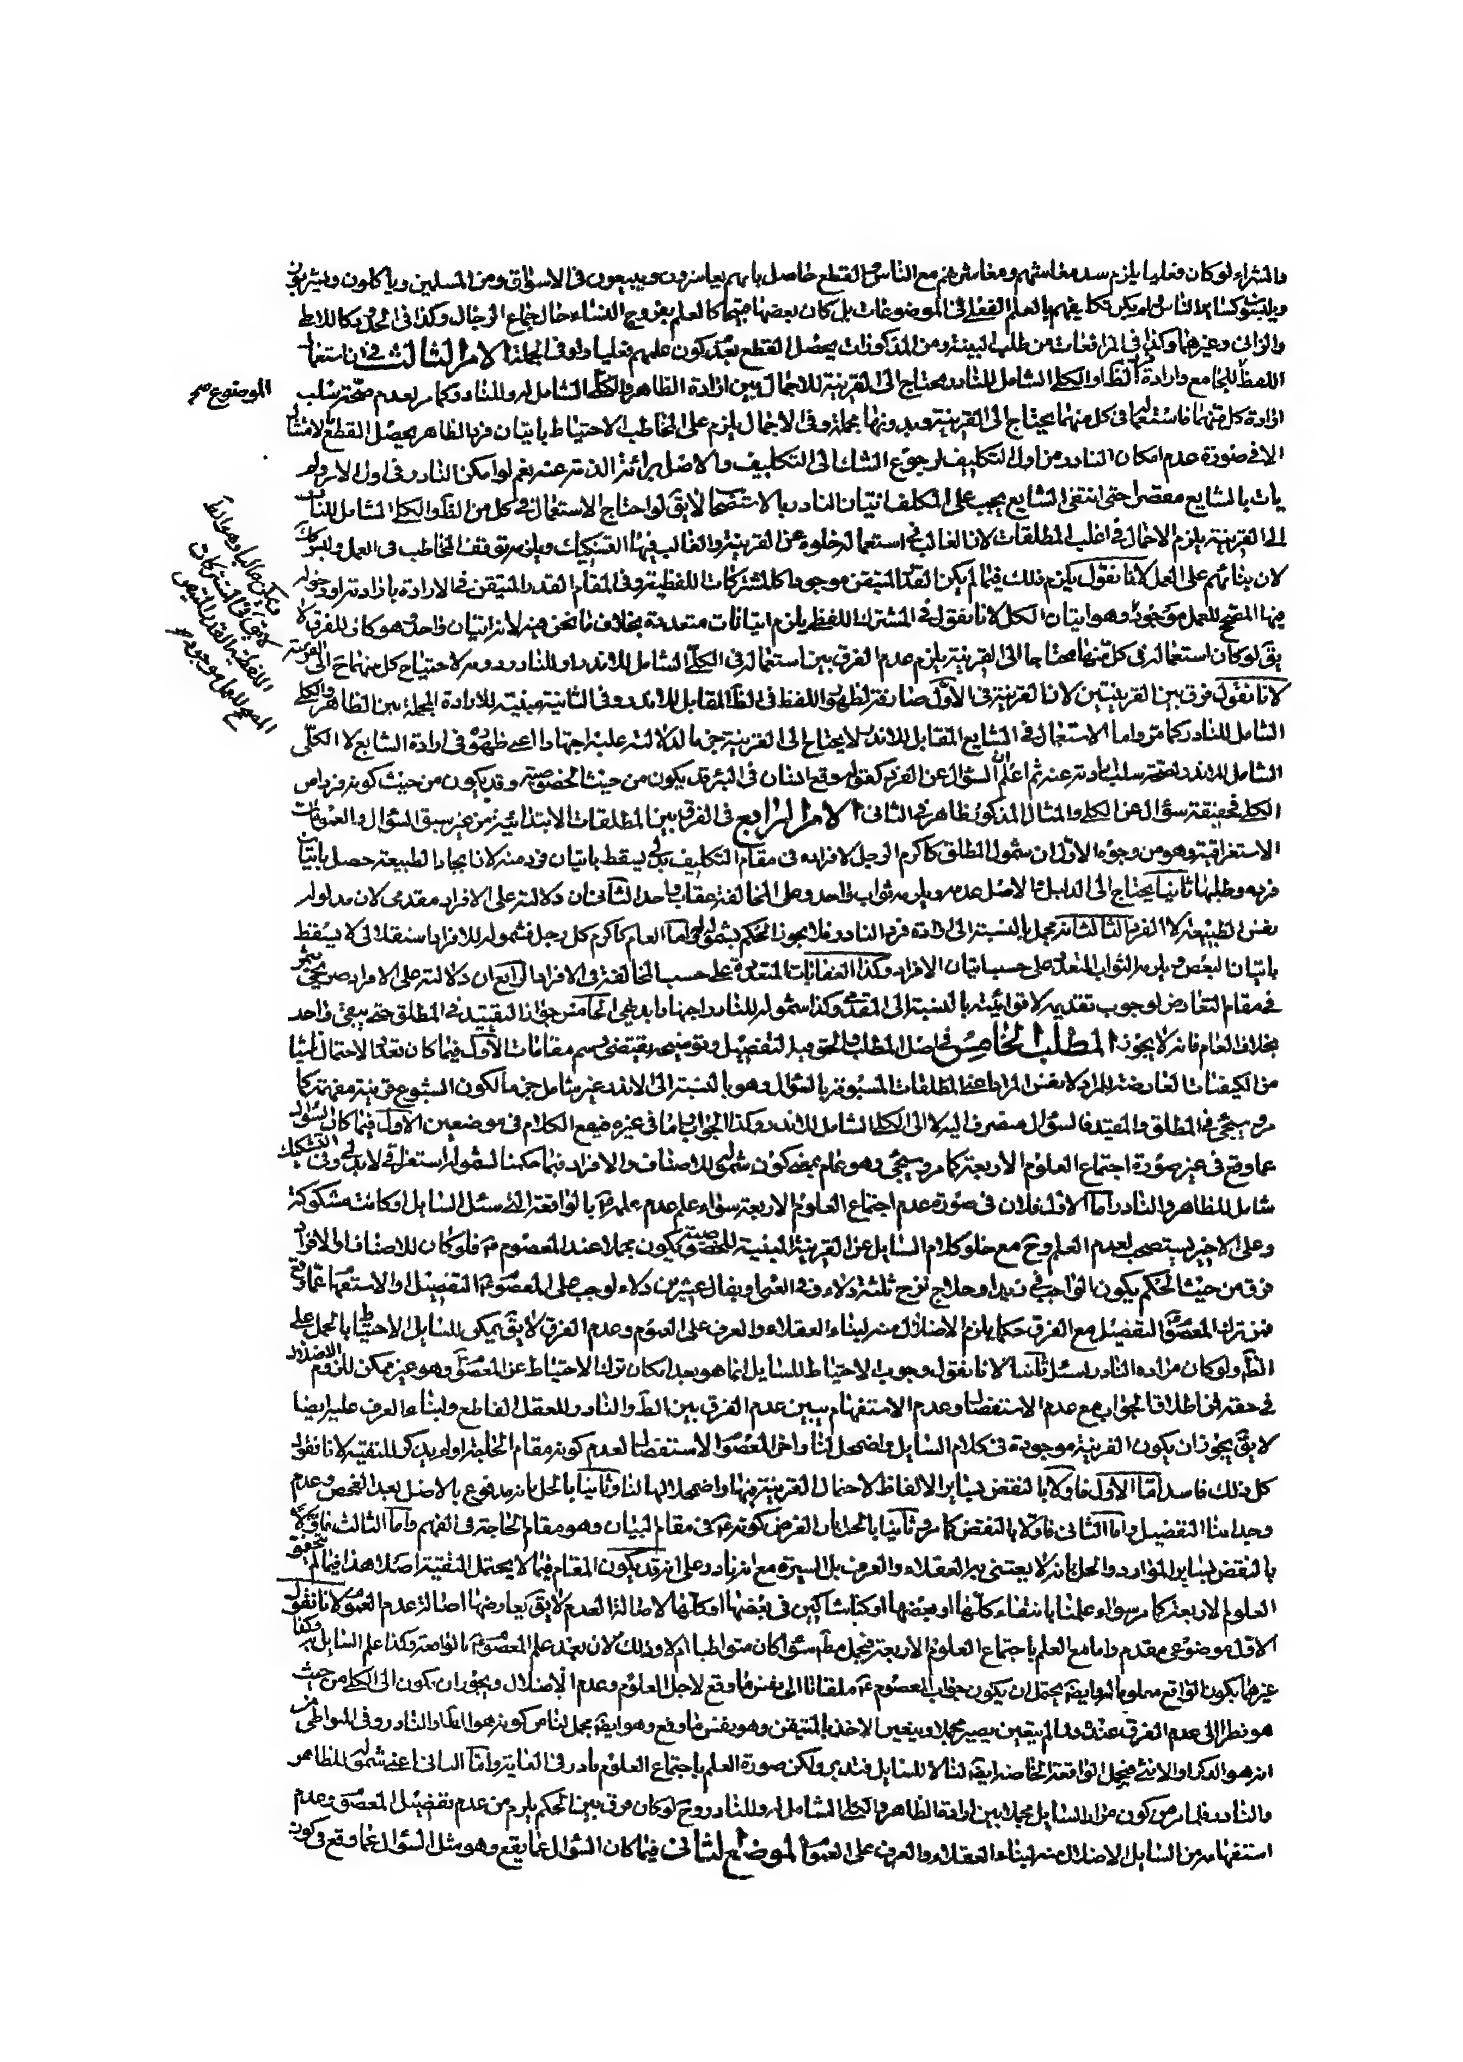 والشراء لو كان فعليا يلزم سد معاشهم ومعاشرتهم مع الناس والقطع حاصل بانهم يعاشرون ويبيعون في الاسواق ومن المسلمين وياكلون ويشربون
ويلبسون كساير الناس ولم يكن تكليفهم بالعلم الفعلي في الموضوعات بل كان بعضها قبيحا كالعلم بفروج النساء حال جماع الرجال وكذا في المحل وكاللائط
والزاني وغيرهما وكذا في المرافعات من طلب البينة ومن المذكورات يحصل القطع بعدم كون علمهم فعليا ولو في الجملة الامر الثالث في ان استعمال
اللفظ للجامع وارادة الظ او الكلي الشامل للنادر يحتاج الى القرينة للاجمال بين ارادة الظاهر والكلي الشامل له وللنادر وكما مر لعدم صحة سلب
الموضوع صح
ارادة كل منهما فاستعماله في كل منهما يحتاج الى القرينة وبدونها مجمل وفي الاجمال يلزم على المخاطب الاحتياط باتيان فرد الظاهر يحصل القطع لامتثال
الا في صورة عدم امكان النادر من اول التكليف لرجوع الشك الى التكليف والاصل برائة الذمة عنه نعم لو امكن النادر في اول الامر ولم
يات بالشايع مقصرا حتى انتفى الشايع يجب على المكلف اتيان النادر بالاستصحاب لا يق لو احتاج الاستعمال في كل من الظ والكلي الشامل للنادر
الى القرينة يلزم الاجمال في اغلب المطلقات لان الغالب في استعماله خلوه عن القرينة والغالب فيها التشكيك ويلزم توقف المخاطب في العمل وليس كذلك
لان بنائهم على العمل لانا نقول يلزم ذلك فيما لم يكن القدر المتيقن موجودا كالمشتركات اللفظية وفي المقام القدر المتيقن في الارادة بارادته او دخوله
ويمكن غالبا وهو الظ
لا يق في المشتركات
اللفظية القدر المتيقن
المصحح للعمل موجود
فيها المصحح للعمل موجود وهو اتيان الكل لانا نقول في المشترك اللفظي يلزم اتيانات متعددة بخلاف ما نحن فيه لان اتيان واحد هو كاف للفرق لا
يق لو كان استعماله في كل منهما محتاجا الى القرينة يلزم عدم الفرق بين استعماله في الكلي الشامل للاندر او للنادر دونه لاحتياج كل منهما ح الى القرينة
لانا نقول فرق بين القرينتين لان القرينة في الاول صارفة لظهور اللفظ في الظ المقابل للاندر وفي الثانية مبينة للارادة المجملة بين الظاهر والكلي
الشامل للنادر كما مر واما الاستعمال في الشايع المقابل للاندر لا يحتاج الى القرينة جزما لدلالته عليه اجتهادا اعني ظهوره في ارادة الشايع لا الكلي
الشامل للاندر لصحة سلب ارادته عنه ثم اعلم ان السؤال عن الفرد كقوله وقع انسان في البئر قد يكون من حيث الخصوصية وقد يكون من حيث كونه فردا من
الكلي فحقيقة سؤال عن الكلي والمثال المذكور ظاهر في الثاني الامر الرابع في الفرق بين المطلقات الابتدائية من غير سبق السؤال والعمومات
الاستغراقية وهو من وجوه الاول ان شمول المطلق كاكرم الرجل لافراده في مقام التكليف بدلي يسقط باتيان فرد منه لان ايجاد الطبيعة حصل باتيان
فرده وطلبها ثانيا يحتاج الى الدليل والاصل عدمه ويلزمه ثواب واحد وعلى المخالفة عقاب واحد الثاني ان دلالته على الافراد مقدمي لان مدلوله
نفس الطبيعة لا الفرد الثالث انه مجمل بالنسبة الى ارادة فرد النادر فلا يجوز الحكم بشموله له واما العام كاكرم كل رجل فشموله للافراد استقلالي لا يسقط
باتيان البعض ويلزمه الثواب المتعدد على حسب اتيان الافراد وكذا العقابات المتعددة على حسب المخالفة في الافراد الرابع ان دلالته على الافراد صريحي يثمر
في مقام التعارض لوجوب تقديمه لاقوائيته بالنسبة الى المقدمي وكذا شموله للنادر اجتهادا بدلي الخامس جواز التقييد في المطلق حتى يبقى واحد
بخلاف العام فانه لا يجوز المطلب الخامس في اصل المطلب والحق فيه التفصيل وتوضيحه يقتضي رسم مقامات الاول فيما كان تعدد الاحتمال ناشيا
من الكيفيات العارضة للمراد لا نفس المراد اعني المطلقات المسبوقة بالسؤال وهو بالنسبة الى الاندر غير شامل جزما لكون الشيوع قرينة مفهمة كما
مر وسيجئ في المطلق والمقيد فالسؤال منصرف اليه لا الى الكلي الشامل للاندر وكذا الجواب واما في غيره فيقع الكلام في موضعين الاول فيما كان السؤال
عما وقع في غير صورة اجتماع العلوم الاربعة كما مر وسيجئ وهو عام بمعنى كون شموله للاصناف والافراد فيما مكنا لشموله استغراقي لا بدلي وفي التشكيك
شامل للظاهر والنادر اما الاول فلان في صورة عدم اجتماع العلوم الاربعة سواء علم عدم علمه ع بالواقعة التي سئل السايل او كانت مشكوكة
وعلى الاخير يستصحب لعدم العلم وح مع خلو كلام السايل عن القرينة المبينة للخصوصية يكون مجملا عند المعصوم ع فلو كان للاصناف او الافراد
فرق من حيث الحكم يكون الواجب في زيد او دجاج نزح ثلثة دلاء وفي الغنم او بغال عشرين دلاء لوجب على المعصوم ع التفصيل والاستفهام عما وقع
فمن ترك المعصوم التفصيل مع الفرق حكما يلزم الاضلال منه لبناء العقلاء والعرف على العموم وعدم الفرق لا يق يمكن للسايل الاحتياط بالحمل على
الظ ولو كان مراده النادر لسئل ثانيا لانا نقول وجوب الاحتياط للسايل انما هو بعد امكان ترك الاحتياط عن المعصوم وهو غير ممكن للزوم الاضلال
في حقه فمن اطلاق الجواب مع عدم الاستفصال وعدم الاستفهام يبين عدم الفرق بين الظ والنادر للعقل القاطع ولبناء العرف عليه ايضا
لا يق يجوز ان يكون القرينة موجودة في كلام السايل واضمحل لنا او اخر المعصوم الاستفصال لعدم كونه مقام الحاجة او لم يذكر للتقية لانا نقول
كل ذلك فاسد اما الاول فاولا بالنقض بساير الالفاظ لاحتمال القرينة فيها واضمحلالها لنا وثانيا بالحل بانه مدفوع بالاصل بعد الفحص وعدم
وجداننا التفصيل واما الثاني فاولا بالنقض كما مر وثانيا بالحل بان الفرض كونه ع في مقام البيان وهو مقام الحاجة في الفهم واما الثالث فاولا
بالنقض بساير الموارد والحل بانه لا يعتنى به العقلاء والعرف بل السيرة مع انه نادر على انه قد يكون المقام فيما لا يحتمل التقية اصلا هذا فيما لم يتحقق
العلوم الاربعة كما مر سواء علمنا بانتفاء كلها او بعضها او كنا شاكين في بعضها او كلها لاصالة العدم لا يق يعارضها اصالة عدم العموم لانا نقول
الاول موضوعي مقدم واما مع العلم باجتماع العلوم الاربعة فمجمل مط سواء كان متواطيا ام لا وذلك لان بعد علم المعصوم ع بالواقعة وكذا علم السايل به وكذا
غيرهما يكون الواقع معلوما لديه فيحتمل ان يكون جواب المعصوم ع ملقاتا الى نفس ما وقع لاجل العلوم وعدم الاضلال ويجوز ان يكون الى الكلي من حيث
هو نظرا الى عدم الفرق عنده وما لم يتعين يصير مجملا ويتعين الاخذ بالمتيقن وهو نفس ما وقع وهو ايضا مجمل لنا من كونه هو الظ او النادر وفي المتواطي من
انه هو الذكر او الانثى فيجمل الواقعة الخاصة ايضا لنا لا للسايل فتدبر ولكن صورة العلم باجتماع العلوم نادر في الغاية واما الثاني اعني شموله للظاهر
والنادر فلما مر من كون مراد السايل مجملا بين ارادة الظاهر والكلي الشامل له وللنادر وح لو كان فرق بينهما في الحكم يلزم من عدم تفصيل المعصوم وعدم
استفهامه من السايل الاضلال منه لبناء العقلاء والعرف على العموم الموضع الثاني فيما كان السؤال عما يقع وهو مثل السؤال عما وقع في كونه